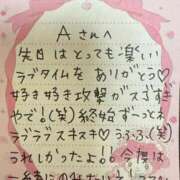 Aさんへ
先日はとっても楽しい
ラブタイムをありがとう♡
好き好き攻撃がスゴすぎ
やで♩(笑)終始ずーっとネ
ラブラブスキスキ♡うふふ(笑)
うれしかったよ!!今度は